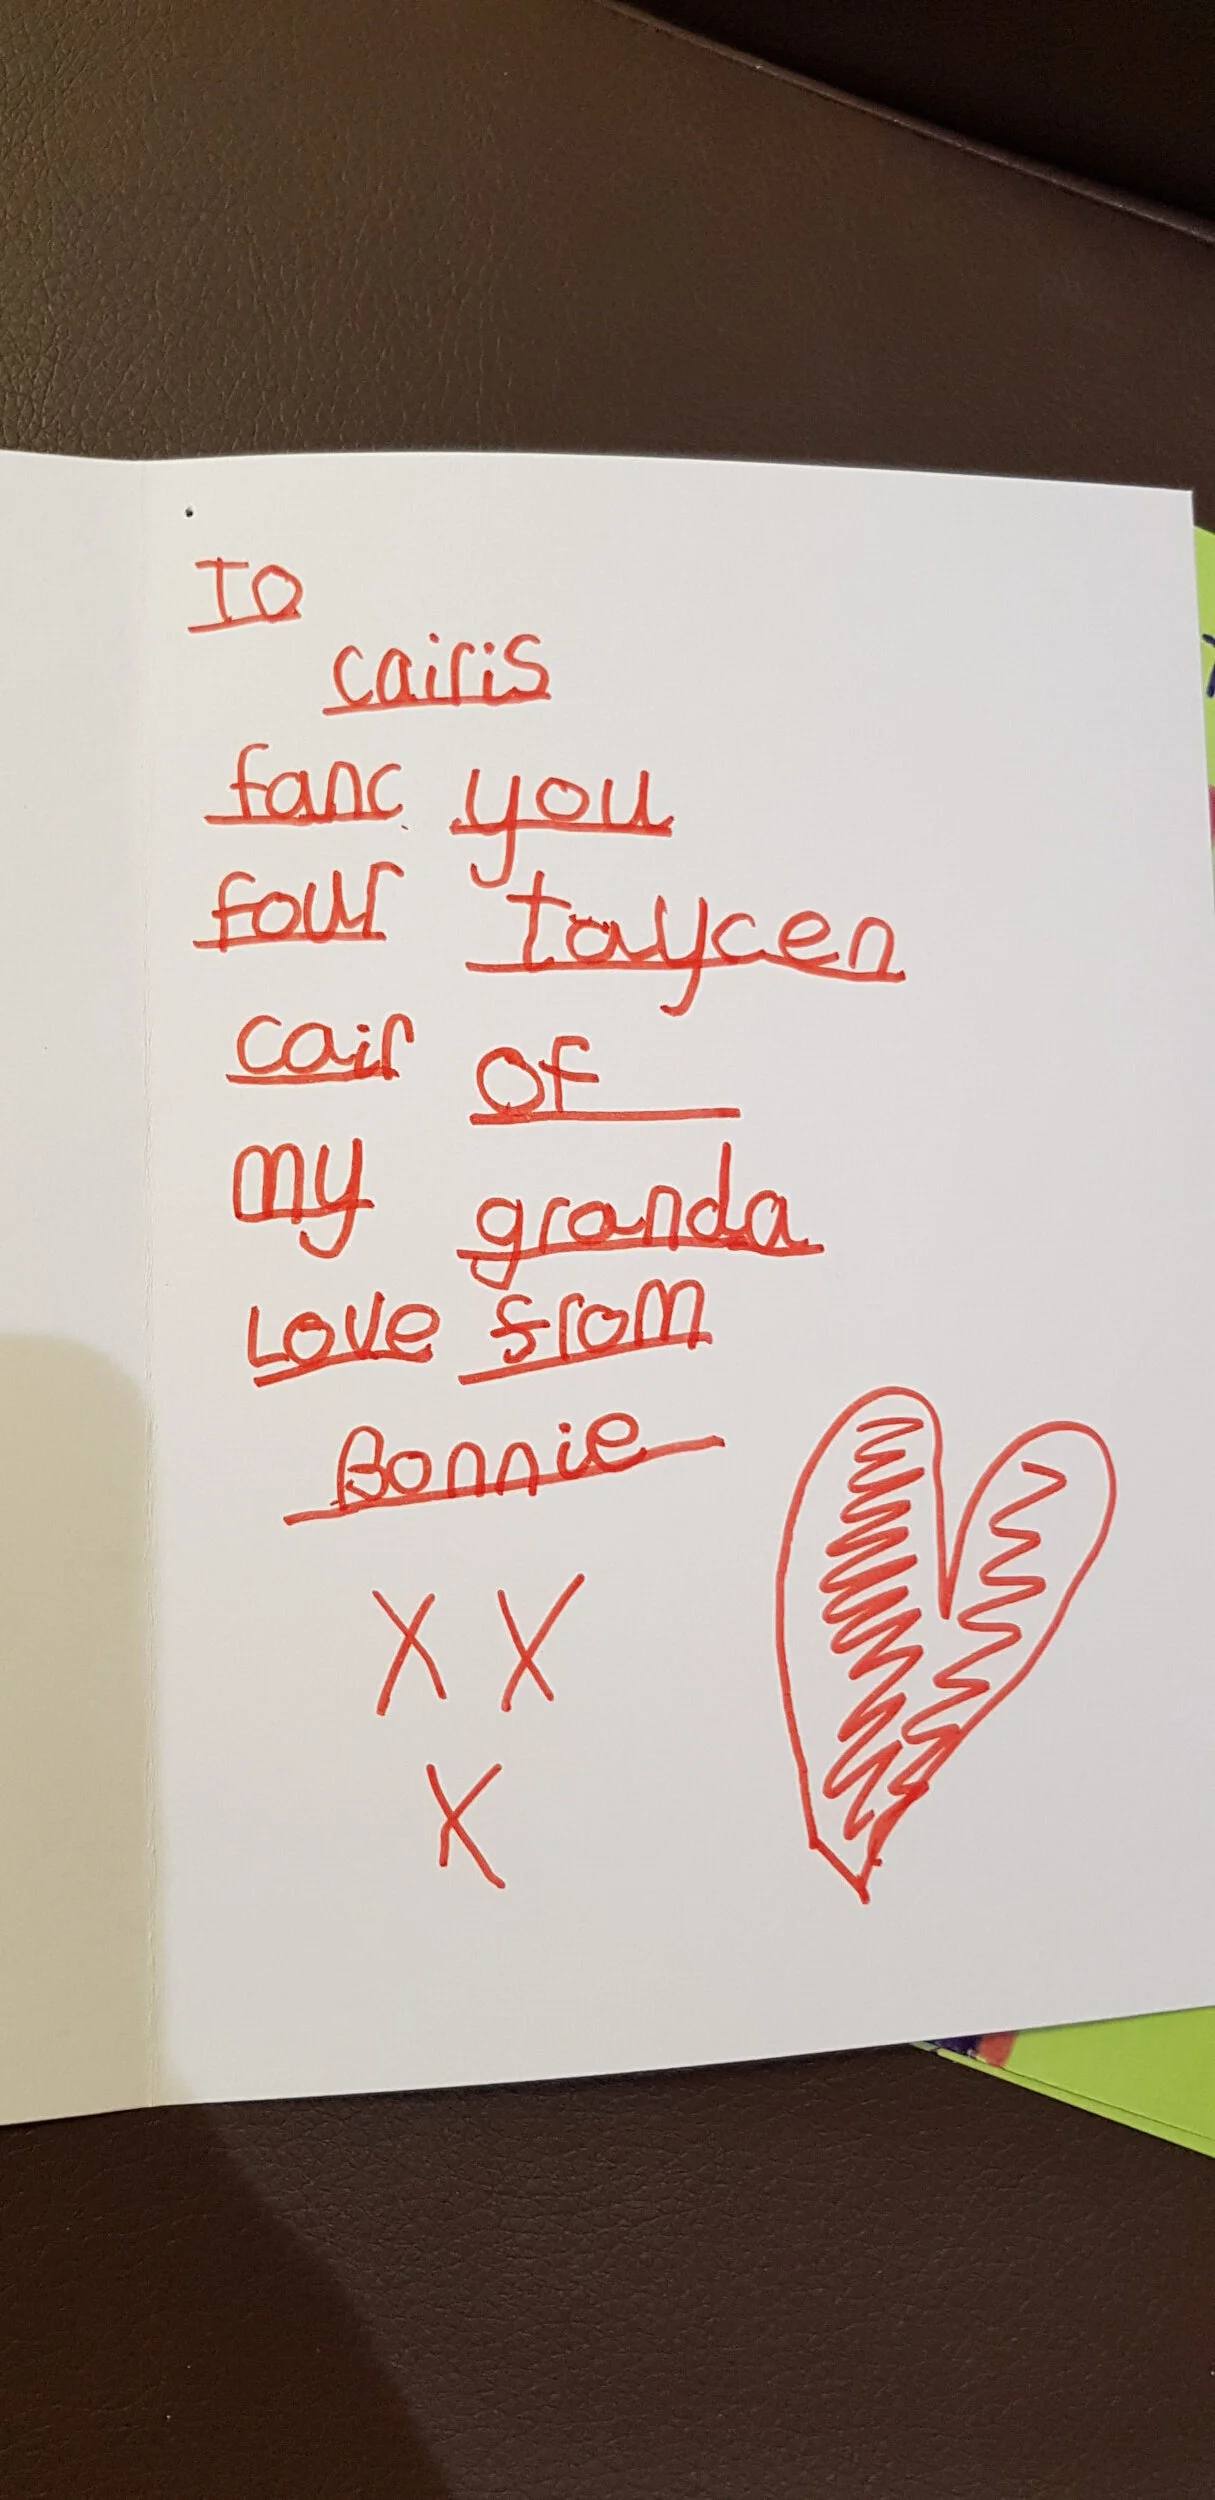 To
cairis
fanc you
four taycen
cair of
my granda
Love from
Bonnie
X X
X